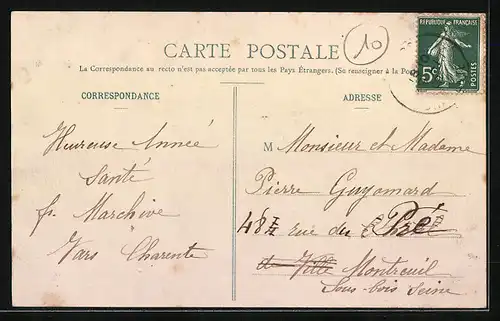 CARTE POSTALE
10
RÉPUBLIQUE FRANÇAISE
5c
POSTES
La Correspondance au recto n'est pas acceptée par tous les Pays Étrangers. (Se renseigner à la Poste
CORRESPONDANCE
ADRESSE
Heureuse Année
Santé
Marchive
Vars Charente
M Monsieur et Madame
Pierre Guyomard
48 rue du Pré
Ville Montreuil
Sous-bois Seine